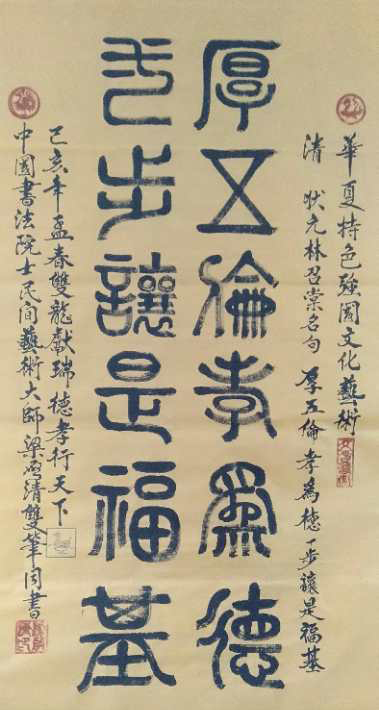 華夏特色強國文化藝術
清 狀元林召棠名句 厚五倫孝為德一步讓是福基
厚五倫孝為德
弌步讓是福基
己亥年孟春雙龍獻瑞德孝行天下
中國書法院士民间藝術大師梁启清雙筆同書